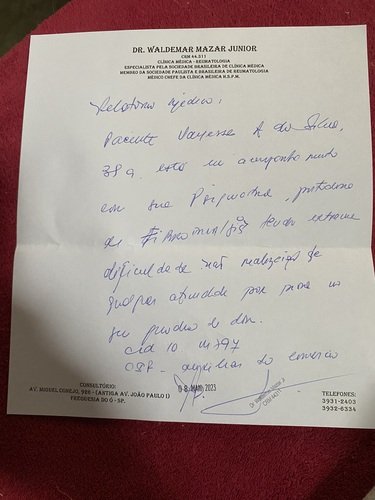 DR. WALDEMAR MAZAR JUNIOR
CRM 44.311
CLÍNICA MÉDICA - REUMATOLOGIA
ESPECIALISTA PELA SOCIEDADE BRASILEIRA DE CLÍNICA MÉDICA
MEMBRO DA SOCIEDADE PAULISTA E BRASILEIRA DE REUMATOLOGIA
MÉDICO CHEFE DA CLÍNICA MÉDICA H.S.P.M.
Relatório Médico:
Paciente Vanessa A da Silva,
38 a. está em acompanhamento
com sua Psiquiatra, portadora
de Fibromialgia tendo extrema
dificuldade na realização de
qualquer atividade por
seu quadro de dor.
Cid 10 M797
do
CONSULTÓRIO:
AV. MIGUEL CONEJO, 926 - (ANTIGA AV. JOÃO PAULO I)
FREGUESIA DO Ó - SP.
08 MAIO 2023
TELEFONES:
3931-2403
3932-6334